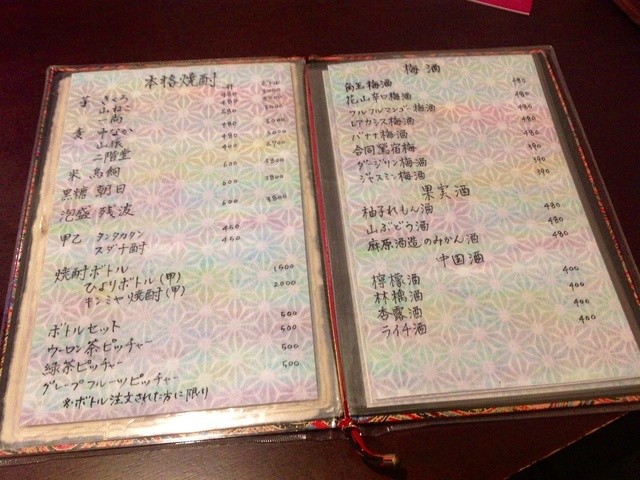 本格焼酎
芋 きくろ 480 3000
山ねこ 480 3000
一尚 580
麦 千なかい 480 3000
山猿 480 3000
二階堂 400 2700
米 鳥飼 600 3800
黒糖 朝日 600 3800
泡盛 残波 600 3800
甲乙 タンタカタン 450
スダチ酎 450
焼酎ボトル
ひよりボトル(甲) 1500
キンミヤ焼酎(甲) 2000
ボトルセット 500
ウーロン茶ピッチャー 500
緑茶ピッチャー 500
グレープフルーツピッチャー 500
※ボトル注文された方に限り
梅酒
梅酒 480
花山辛口梅酒 480
フルフルマンゴー梅酒 480
レアカシス梅酒 480
バナナ梅酒 480
合同黒宿梅 390
ダージリン梅酒 390
ジャスミン梅酒 390
果実酒
柚子れもん酒 480
山ぶどう酒 480
麻原酒造のみかん酒 480
中国酒
檸檬酒 400
林檎酒 400
杏露酒 400
ライチ酒 400